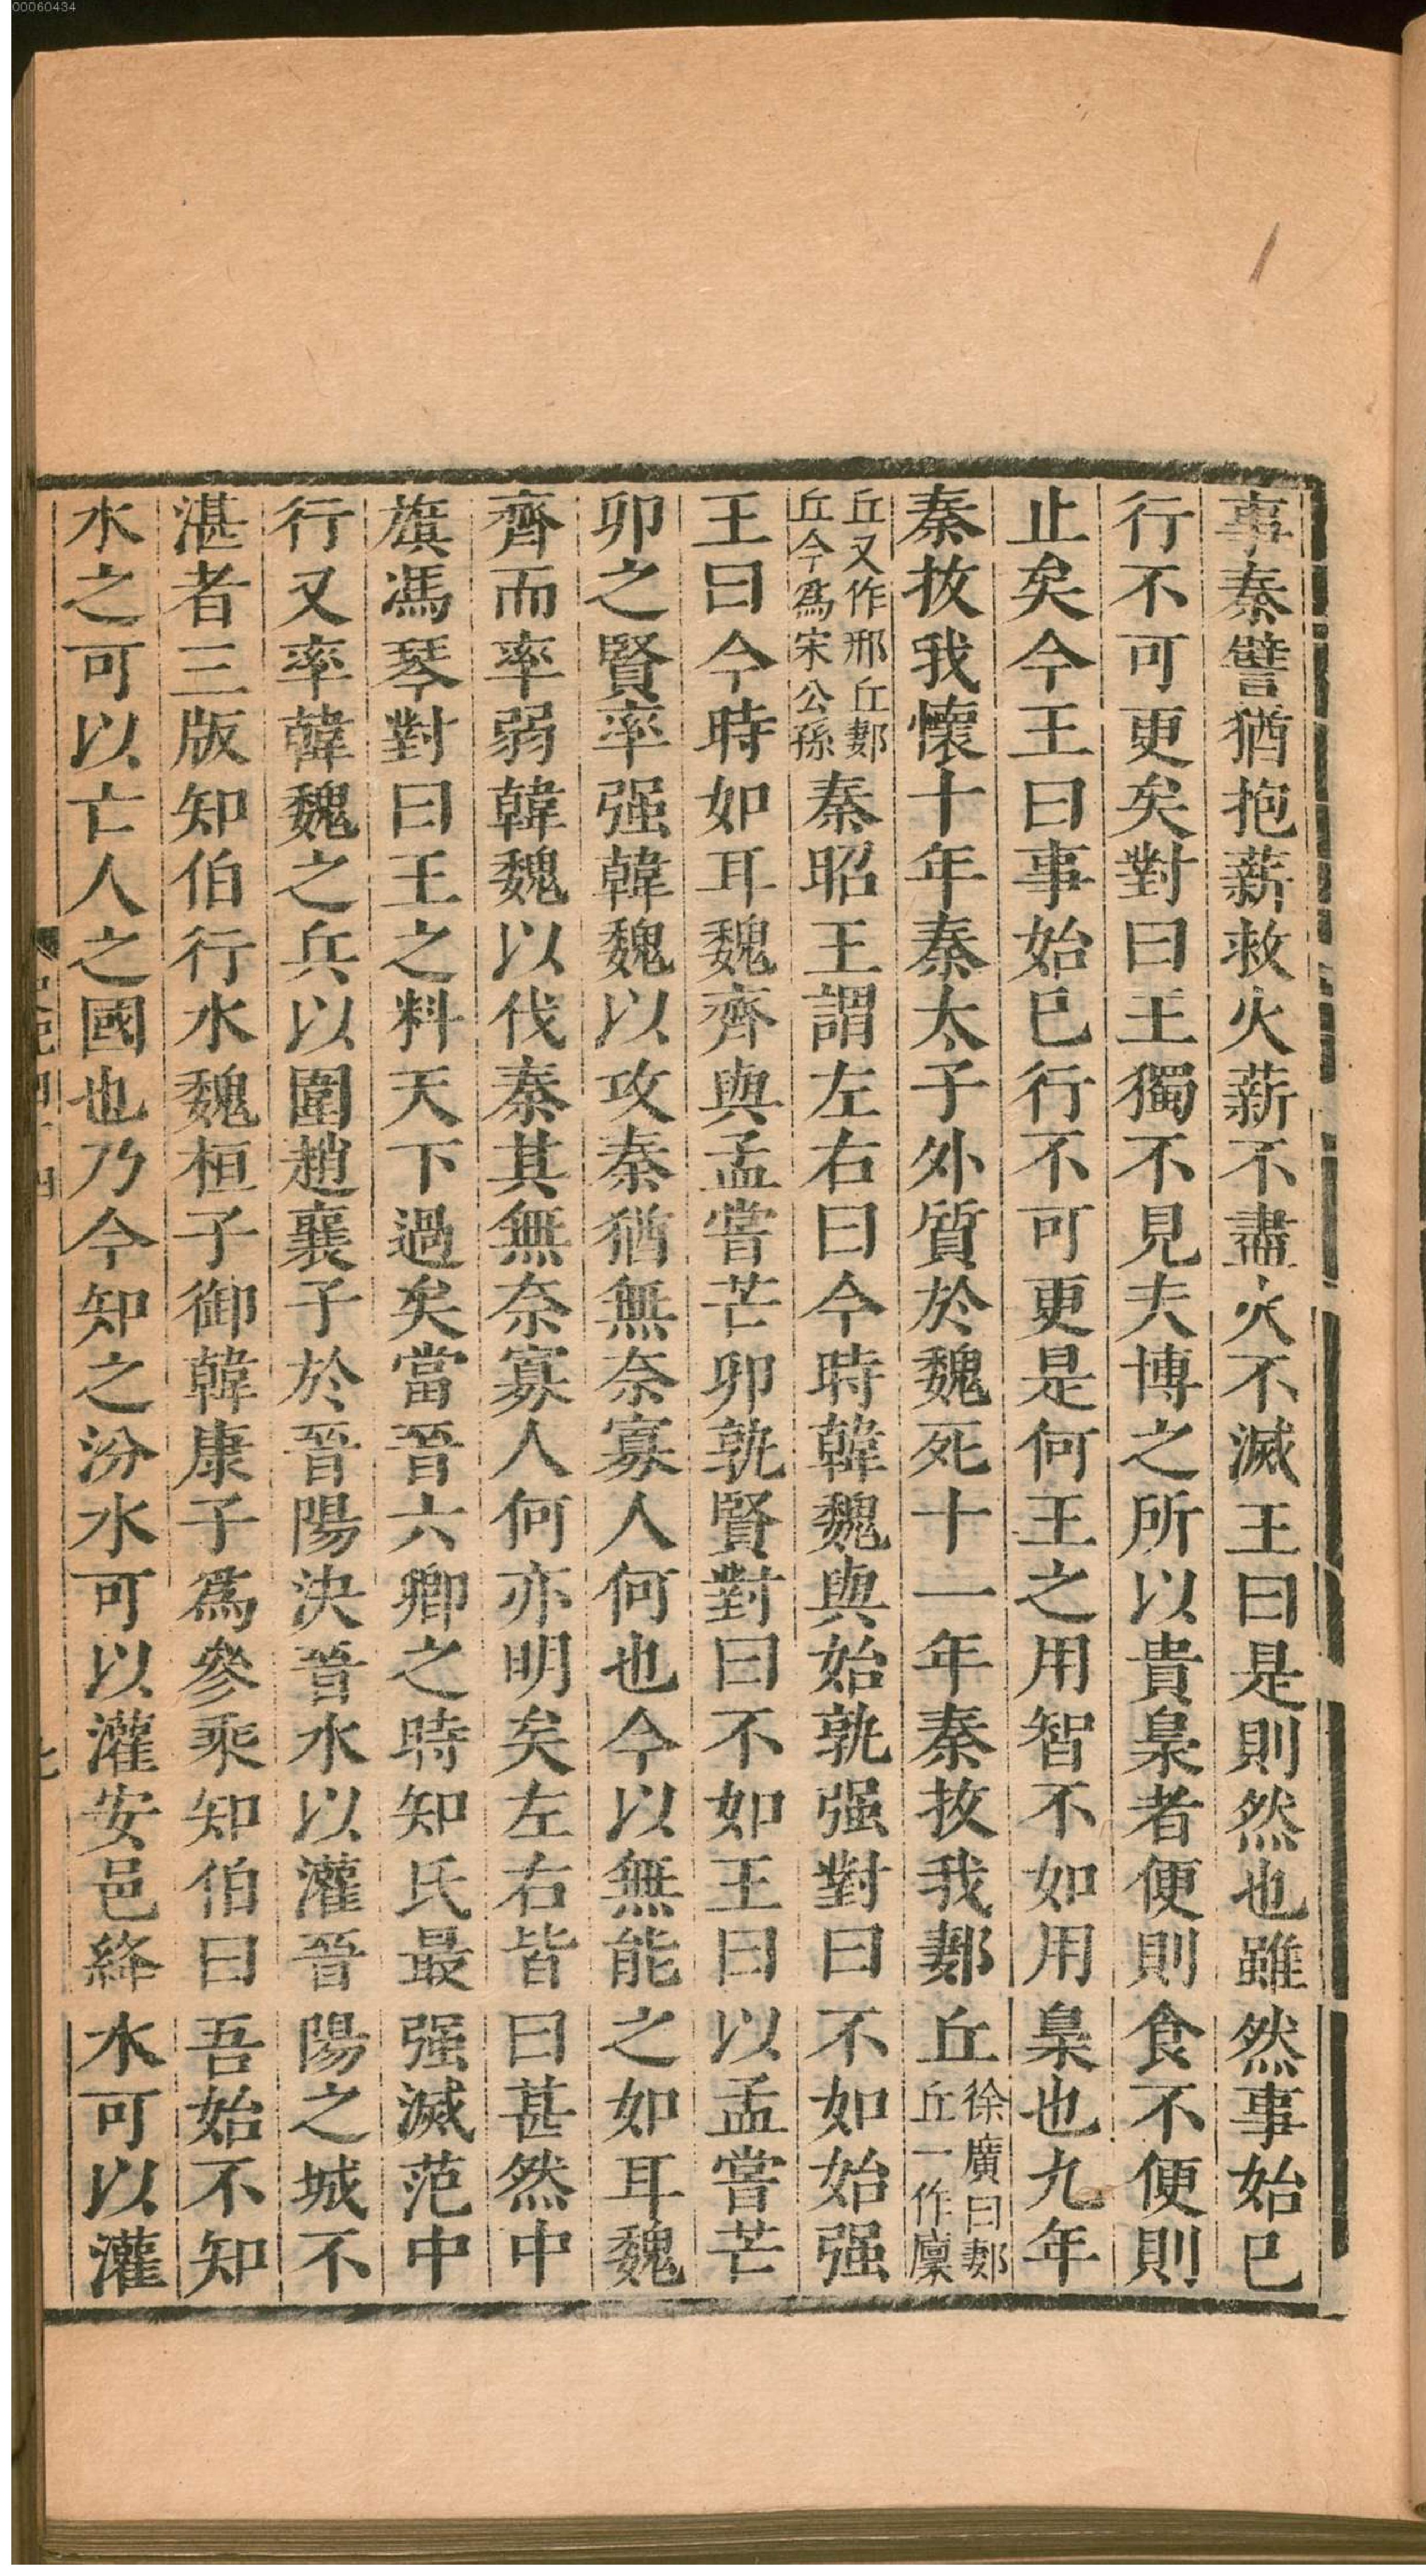 00060434
事秦譬猶抱薪救火薪不盡火不滅王曰是則然也雖然事始已
行不可更矣對曰王獨不見夫博之所以貴梟者便則食不便則
止矣今王曰事始已行不可更是何王之用智不如用梟也九年
秦拔我懷十年秦太子外質於魏死十一年秦拔我郪丘徐廣曰郪丘一作廩
丘又作邢丘郪丘今爲宋公孫秦昭王謂左右曰今時韓魏與始孰强對曰不如始强
王曰今時如耳魏齊與孟嘗芒卯孰賢對曰不如王曰以孟嘗芒
卯之賢率强韓魏以攻秦猶無奈寡人何也今以無能之如耳魏
齊而率弱韓魏以伐秦其無奈寡人何亦明矣左右皆曰甚然中
旗馮琴對曰王之料天下過矣當晉六卿之時知氏最强滅范中
行又率韓魏之兵以圍趙襄子於晉陽決晉水以灌晉陽之城不
湛者三版知伯行水魏桓子御韓康子爲參乘知伯曰吾始不知
水之可以亡人之國也乃今知之汾水可以灌安邑絳水可以灌